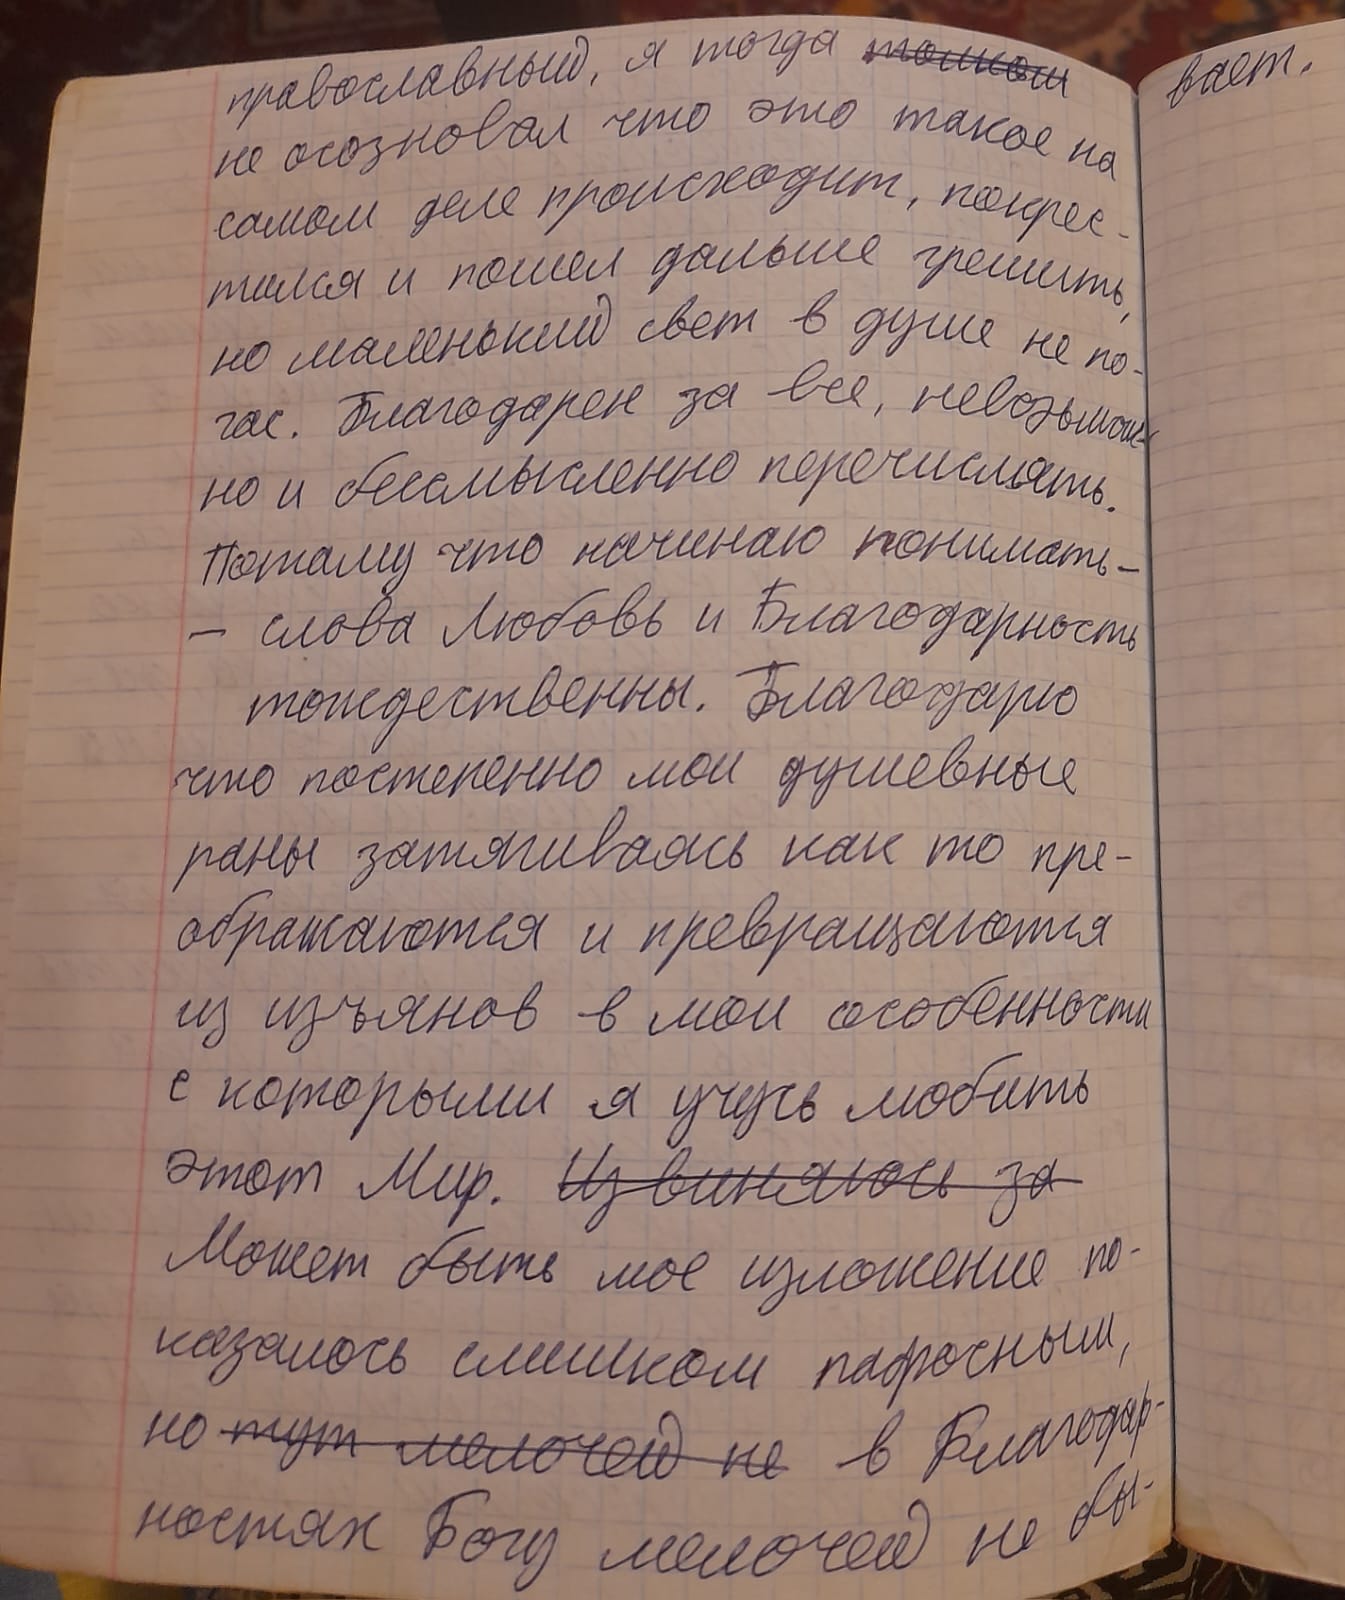 православный, я тогда толком
не осозновал что это такое на
самом деле происходит, покрес-
тился и пошел дальше грешить,
но маленький свет в душе не по-
гас. Благодарен за все, невозьмож-
но и бессмысленно перечислять.
Потому что начинаю понимать-
- слова Любовь и Благодарность
тождественны. Благодарю
что постепенно мои душевные
раны затягиваясь как то пре-
ображаются и превращаются
из изъянов в мои особенности
с которыми я учусь любить
этот Мир. Извиняюсь за
Может быть мое изложение по-
казалось слишком пафосным,
но тут мелочей не в Благодар-
ностях Богу мелочей не бы-
вает.